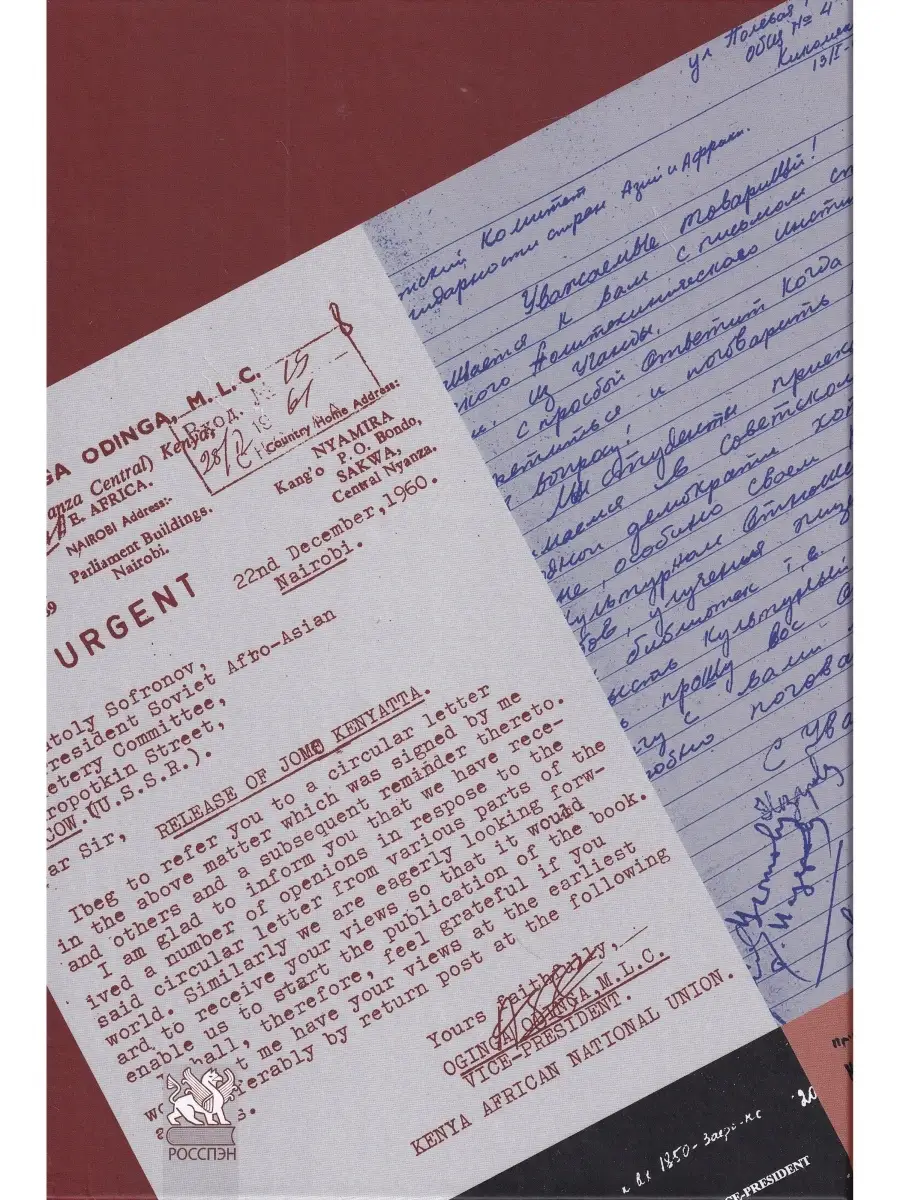 GA ODINGA, M.L.C.
Вход. №
15
28/12 19 61
8
anza Central) Kenya
E. AFRICA.
NAIROBI Address:-
Parliament Buildings,
Nairobi.
Country/Home Address:
NYAMIRA
Kang'o P.O. Bondo,
SAKWA,
Central Nyanza.
22nd December, 1960.
Nairobi.
URGENT
atoly Sofronov,
resident Soviet Afro-Asian
etery Committee,
ropotkin Street,
COW. (U.S.S.R.).
ar Sir,
RELEASE OF JOMO KENYATTA.
Ibeg to refer you to a circular letter
in the above matter which was signed by me
and others and a subsequent reminder thereto.
I am glad to inform you that we have rece-
ived a number of openions in respose to the
said circular letter from various parts of the
world. Similarly we are eagerly looking forw-
ard to receive your views so that it would
enable us to start the publication of the book.
I shall, therefore, feel grateful if you
wo t me have your views at the earliest
a ferably by return post at the following
s.
Yours faithfully,
OGINGA ODINGA, M.L.C.
VICE-PRESIDENT.
KENYA AFRICAN NATIONAL UNION.
ул Полевая
общ № 4
13/I-
тский комитет
идарности стран Азии и Африки.
Уважаемые товарищи!
щается к вам с письмом ст
ского Политехнического инсти
из Уганды.
с просьбой ответит когда
ретиться и поговарить
вопросу!
Мы студенты приех
маемся в советском
дной демократи хот
не, особино своем
культурном отноше
ов, улучения
библиотек т.в.
культурный
прошу вос
с вами
обно погова
С Ува
РОССПЭН
1850-
20
CE-PRESIDENT